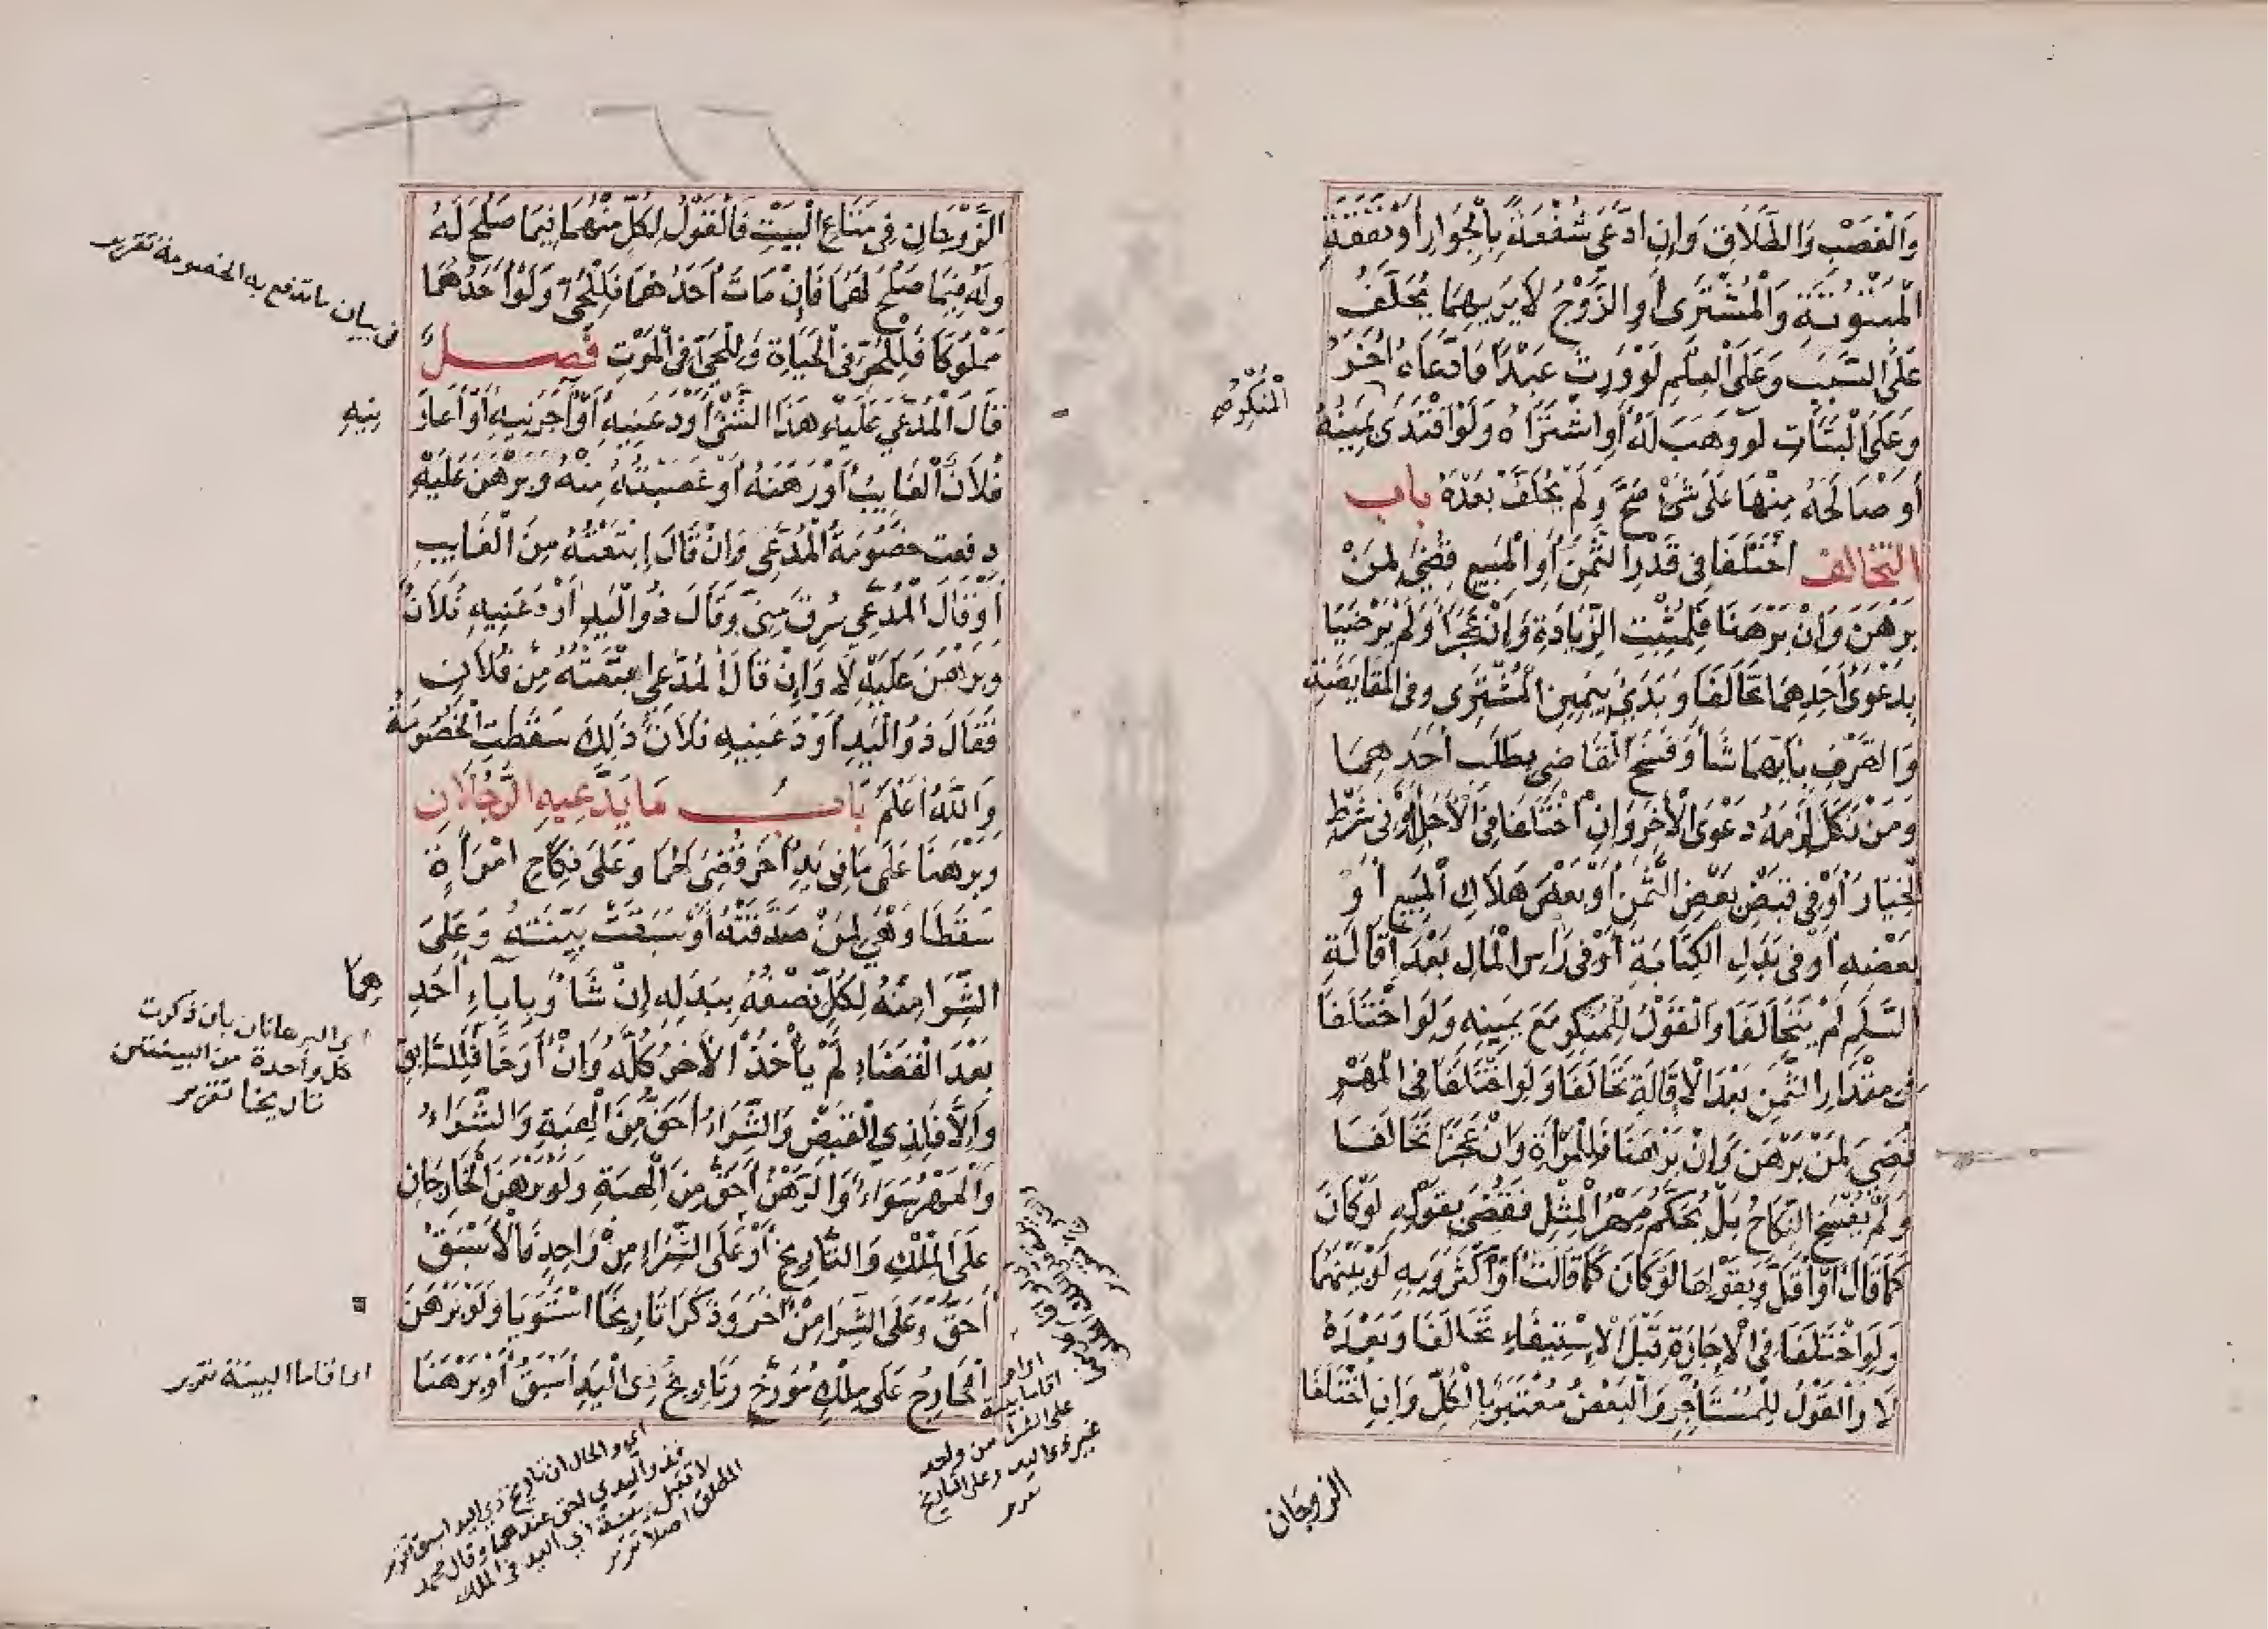 وَالْغَصْبِ وَالطَّلَاقِ وَإِنِ ادَّعَى شُفْعَةً بِالْجِوَارِ أَوْ نَفَقَةِ
الْمَبْتُوتَةِ وَالْمُشْتَرِى أَوِ الزَّوْجُ لَا يَرَيهِمَا يُحَلَّفُ
عَلَى السَّبَبِ وَعَلَى الْعِلْمِ لَوْ وَرِثَ عَبْدًا فَادَّعَاهُ اٰخَرُ
وَعَلَى الْبَتَاتِ لَوْ وَهَبَ لَهُ أَوِ اشْتَرَاهُ وَلَوْ افْتَدَى يَمِينَهُ
الْمُنْكِرُ صح
أَوْ صَالَحَهُ مِنْهَا عَلَى شَىْءٍ صَحَّ وَلَمْ يُحَلَّفْ بَعْدَهُ بَاب
التَّحَالُفْ اخْتَلَفَا فِى قَدْرِ الثَّمَنِ أَوِ الْمَبِيعِ قُضِىَ لِمَنْ
بَرْهَنَ وَإِنْ بَرْهَنَا فَلِمُثْبِتِ الزِّيَادَةِ وَإِنْ عَجَزَا وَلَمْ يَرْضَيَا
بِدَعْوَى أَحَدِهِمَا تَحَالَفَا وَبُدِئَ بِيَمِينِ الْمُشْتَرِى وَفِى الْمُقَايَضَةِ
وَالصَّرْفِ بِأَيِّهِمَا شَا وَفَسَخَ الْقَاضِى بِطَلَبِ أَحَدِهِمَا
وَمَنْ نَكَلَ لَزِمَهُ دَعْوَى الْاٰخَرِ وَإِنِ اخْتَلَفَا فِى الْأَجَلِ أَوْ فِى شَرْطِ
الْخِيَارِ أَوْ فِى قَبْضِ بَعْضِ الثَّمَنِ أَوْ بَعْضِ هَلَاكِ الْمَبِيعِ أَوْ
بَعْضِهِ أَوْ فِى بَدَلِ الْكِتَابَةِ أَوْ فِى رَاسِ الْمَالِ بَعْدَ إِقَالَةِ
السَّلَمِ لَمْ يَتَحَالَفَا وَالْقَوْلُ لِلْمُنْكِرِ مَعَ يَمِينِهِ وَلَوِ اخْتَلَفَا
فِى مِقْدَارِ الثَّمَنِ بَعْدَ الْإِقَالَةِ تَحَالَفَا وَلَوِ اخْتَلَفَا فِى الْمَهْرِ
قُضِىَ لِمَنْ بَرْهَنَ وَإِنْ بَرْهَنَا فَلِلْمَرْأَةِ وَإِنْ عَجَزَا تَحَالَفَا
وَلَمْ يُفْسَخِ النِّكَاحُ بَلْ يُحَكَّمُ مَهْرُ الْمِثْلِ فَقُضِىَ بِقَوْلِهِ لَوْ كَانَ
كَمَا قَالَ أَوْ أَقَلَّ وَبِقَوْلِهَا لَوْ كَانَ كَمَا قَالَتْ أَوْ أَكْثَرَ وَبِهِ لَوْ بَيْنَهُمَا
وَلَوِ اخْتَلَفَا فِى الْإِجَارَةِ قَبْلَ الْإِسْتِيفَاءِ تَحَالَفَا وَبَعْدَهُ
لَا وَالْقَوْلُ لِلْمُسْتَأْجِرِ وَالْبَعْضُ مُعْتَبَرٌ بِالْكُلِّ وَإِنِ اخْتَلَفَا
الزوجان
الزَّوْجَانِ فِى مَتَاعِ الْبَيْتِ فَالْقَوْلُ لِكُلٍّ مِنْهُمَا فِيمَا صَلُحَ لَهُ
وَلَهُ فِيمَا صَلُحَ لَهُمَا فَإِنْ مَاتَ أَحَدُهُمَا فَلِلْحَىِّ وَلَوْ أَحَدُهُمَا
مَمْلُوكًا فَلِلْحُرِّ فِى الْحَيَاةِ وَلِلْحَىِّ فِى الْمَوْتِ فَصل
فى بيان ما تندفع به الخصومة تقرير
قَالَ الْمُدَّعَى عَلَيْهِ هَذَا الشَّىْءُ أَوْدَعَنِيهِ أَوْ أَجَرَنِيهِ أَوْ أَعَارَ
نِيهِ
فُلَانٌ الْغَايِبُ أَوْ رَهَنَهُ أَوْ غَصَبْتُهُ مِنْهُ وَبَرْهَنَ عَلَيْهِ
دفعت خصُومَةُ الْمُدَّعِى وَإِنْ قَالَ إِبْتَعْتُهُ مِنَ الْغَايِبِ
أَوْ قَالَ الْمُدَّعِى سُرِقَ مِنِّى وَقَالَ ذُو الْيَدِ أَوْدَعَنِيهِ فُلَانٌ
وَبَرْهَنَ عَلَيْهِ لَا وَإِنْ قَالَ الْمُدَّعِى ابْتَعْتُهُ مِنْ فُلَانٍ
فَقَالَ ذُو الْيَدِ أَوْدَعَنِيهِ فُلَانٌ ذَلِكَ سَقَطَتِ الْخُصُومَةُ
وَاللّٰهُ أَعْلَمُ بَابُ مَا يَدَّعِيهِ الرَّجُلَانِ
وَبَرْهَنَا عَلَى مَا فِى يَدِ اٰخَرَ قُضِىَ لَهُمَا وَعَلَى نِكَاحِ امْرَأَةٍ
سَقَطَا وَهِىَ لِمَنْ صَدَّقَتْهُ أَوْ سَبَقَتْ بَيِّنَتُهُ وَعَلَى
الشِّرَا مِنْهُ لِكُلٍّ نِصْفُهُ بِبَدَلِهِ إِنْ شَا وَبِإِبَاءِ أَحَدِ
هِمَا
بَعْدَ الْقَضَاءِ لَمْ يَأْخُذْ الْاٰخَرُ كُلَّهُ وَإِنْ أَرَّخَا فَلِلسَّابِقِ
اى البرهانان بان ذكرت
كل واحدة من البينتين
تاريخا تقرير
وَإِلَّا فَلِذِى الْقَبْضِ وَالشِّرَاءُ أَحَقُّ مِنَ الْهِبَةِ وَالشِّرَاءُ
وَالْمَهْرُ سَوَاءٌ وَالرَّهْنُ أَحَقُّ مِنَ الْهِبَةِ وَلَوْ بَرْهَنَ الْخَارِجَانِ
عَلَى الْمِلْكِ وَالتَّارِيخِ أَوْ عَلَى الشِّرَاءِ مِنْ وَاحِدٍ فَالْأَسْبَقُ
أَحَقُّ وَعَلَى الشِّرَا مِنْ اٰخَرَ وَذَكَرَا تَارِيخًا اسْتَوَيَا وَلَوْ بَرْهَنَ
الْخَارِجُ عَلَى مِلْكٍ مُؤَرَّخٍ وَتَارِيخُ ذِى الْيَدِ أَسْبَقُ أَوْ بَرْهَنَا
اقاما البينة تقرير
اقاما بينة
على الشرا من واحد
غير ذى اليد وعلى التاريخ
اى والحال ان تاريخ ذى اليد اسبق تقرير
احق عندهما وقال محمد
لا تقبل بينة ذى اليد فى الملك
المطلق اصلا تقرير